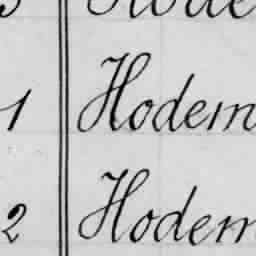 1 Hodem
2 Hodem